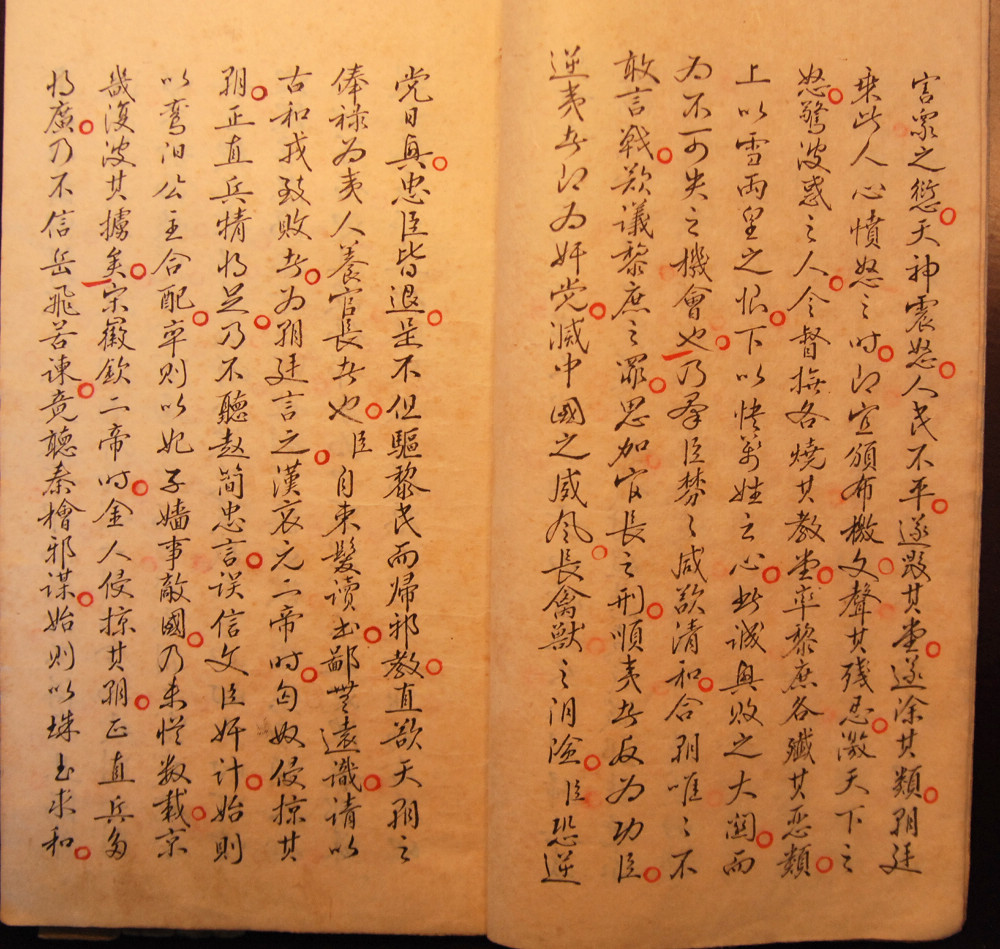 害衆之愆天神震怒人民不平遂毀其堂遂除其類朝廷
乘此人心憤怒之时即宜頒布檄文聲其殘忍激天下之
怒驚波惑之人令督撫各燒其教堂率黎庶各殲其惡類
上以雪兩皇之恨下以快萬姓之心此誠興敗之大関而
为不可失之機會也乃羣臣棼〻咸欲清和合朝唯〻不
敢言戰欺議黎庶之罪思加官長之刑順夷者反为功臣
逆夷者即为奸党滅中國之威风長禽獸之淯淦臣恐逆
党日興忠臣皆退是不但驅黎民而歸邪教直欲天朝之
俸禄为夷人養官長者也臣自束髮讀书鄙無遠識请以
古和戎致敗者为朝廷言之漢哀元二帝时匈奴侵掠其
朝正直兵精将足乃不聽趙简忠言误信文臣奸计始则
以鸾汨公主合配卒则以妃子嫱事敵國乃未悦数載京
畿復波其擄矣宋徽欽二帝时金人侵掠其朝正直兵多
将廣乃不信岳飛苦谏竟聽秦檜邪謀始则以珠玉求和